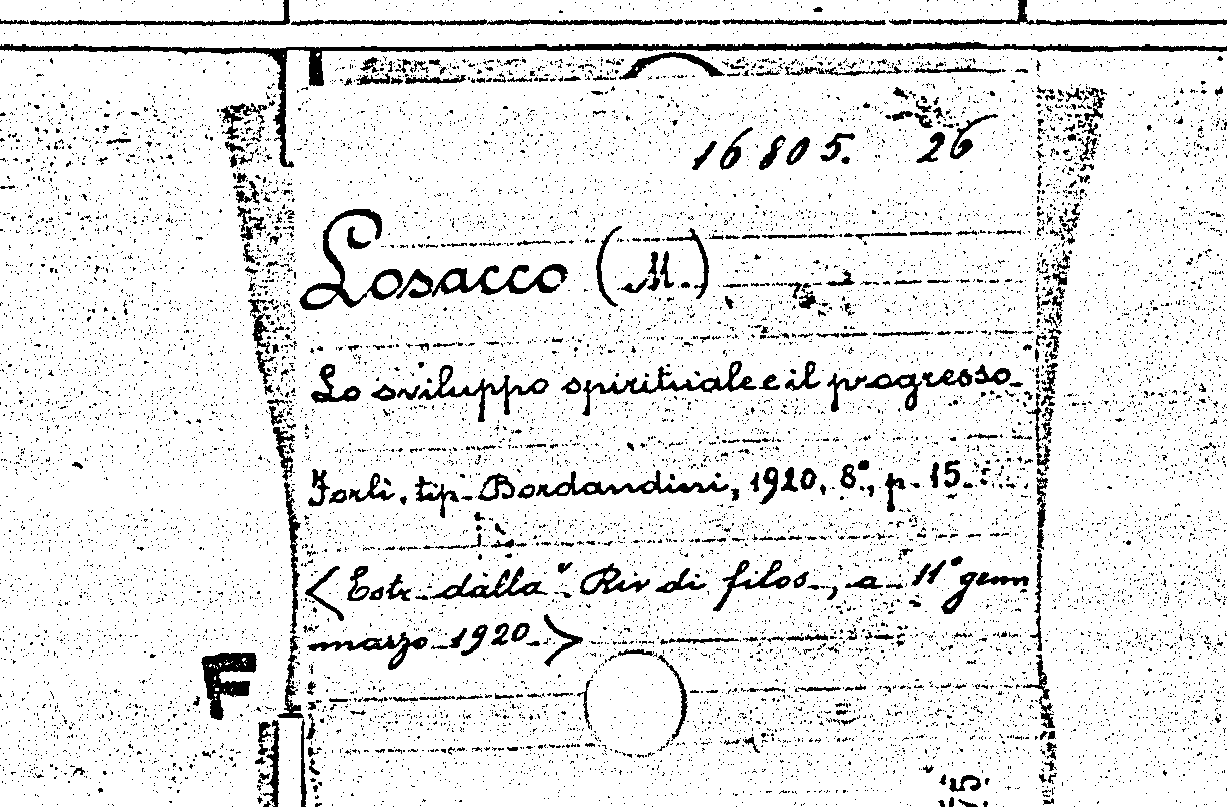 16805. 26
Losacco (M.)
Lo sviluppo spirituale e il progresso.
Forlì, tip. Bordandini, 1920, 8°, p. 15.
<Estr. dalla "Riv di filos., a 11° genn
marzo 1920.>
F